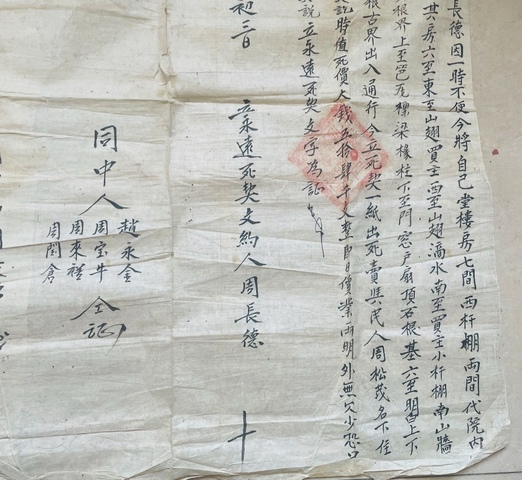 長德因一時不便今將自己堂樓房七間西杆棚兩間代院內
其房六至東至山翅買主西至山翅滴水南至買主小杆棚南山牆
根界上至笆瓦檩梁椽柱下至門窓戶扇頂石根基六至明白上下
古界出入通行今立死契一紙出死賣與民人周松茂名下住
訖時值死價大錢五拾肆千文整即日價業兩明外無欠少恐口
說立永遠死契文字為証
初三日
立永遠死契文約人周長德 十
同中人
趙永金
周寶牛
周來禧
周閏倉
仝証